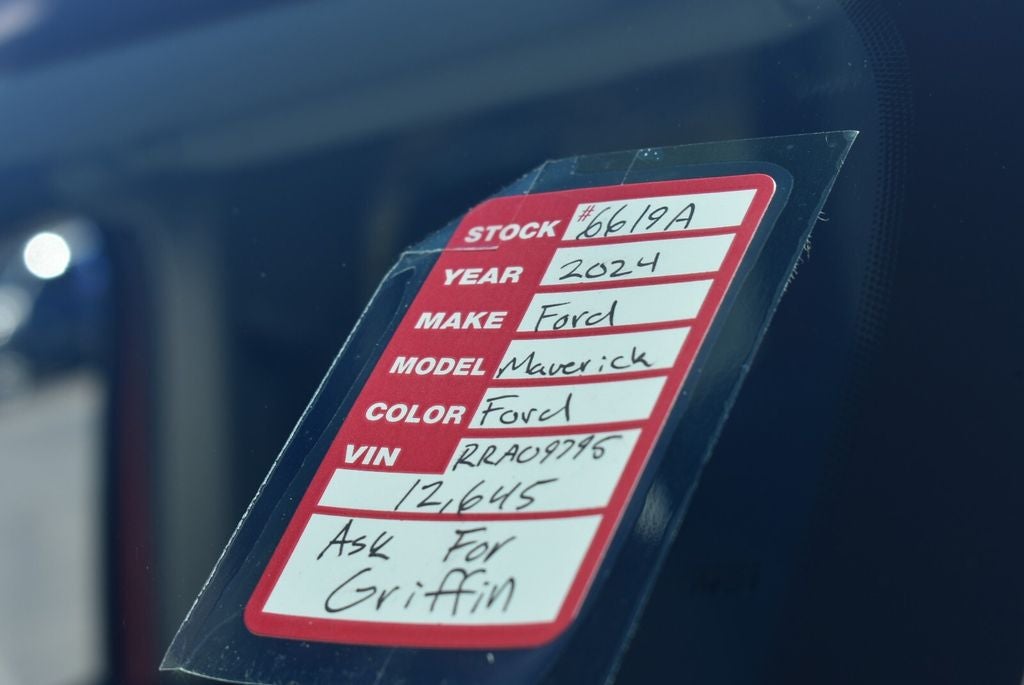 STOCK #6619A
YEAR 2024
MAKE Ford
MODEL Maverick
COLOR Ford
VIN RRA09795
12,645
Ask For
Griffin